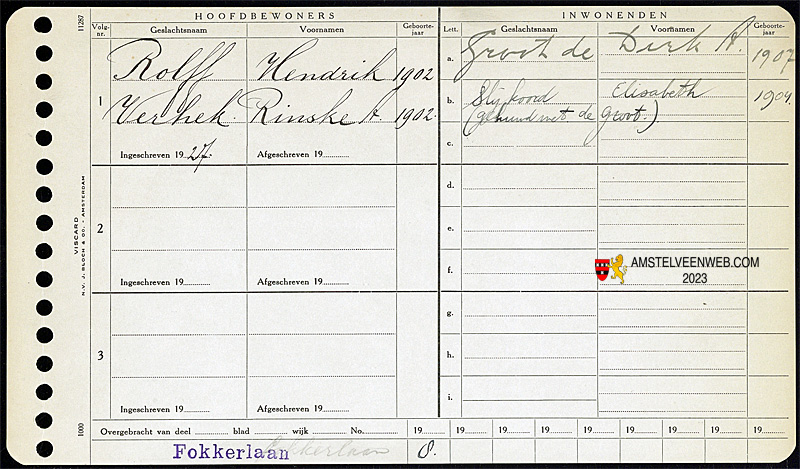 HOOFDBEWONERS
INWONENDEN
Volg-nr.
Geslachtsnaam
Voornamen
Geboorte-jaar
Lett.
Geslachtsnaam
Voornamen
Geboorte-jaar
11287
1
Rolff Hendrik 1902
Verhek. Rinske A. 1902.
Ingeschreven 1927.
Afgeschreven 19
a. Groot de Dirk A. 1907
b. Elisabeth 1904.
de Groot.)
c.
2
Ingeschreven 19
Afgeschreven 19
d.
e.
f.
AMSTELVEENWEB.COM
2023
3
Ingeschreven 19
Afgeschreven 19
g.
h.
i.
VISCARD
N.V. J. BLOCH & CO. - AMSTERDAM
1000
Overgebracht van deel blad wijk No. 19 19 19 19 19 19 19
Fokkerlaan Fokkerlaan 8.